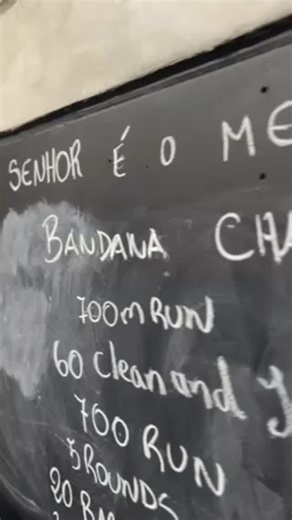 SENHOR É O
BANDANA
700m RUN
60 Clean and
700 RUN
3 ROUNDS
20